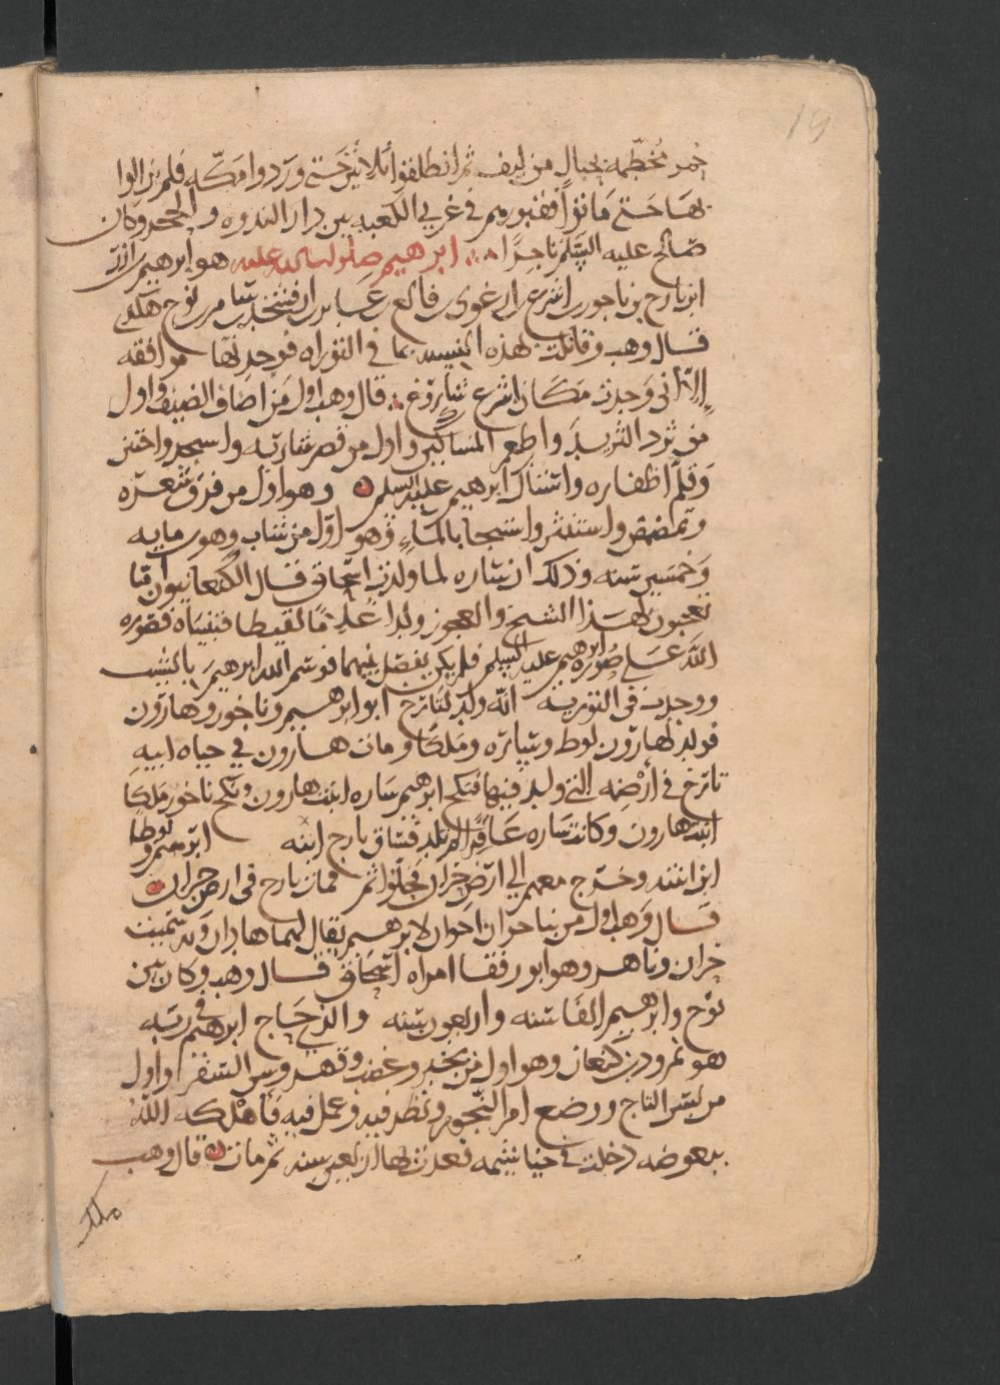 19
حمر مخطمه بحبال من ليف ثم انطلقوا حتى وردوا مكّه فلم يزالوا
بها حتى ماتوا فقبورهم في غربي الكعبه بين دار الندوه و الحجر وكان
صالح عليه السلم تاجرًا ابرهيم صلوات الله عليه هو ابرهيم
ابن تارح بن ناحور بن اشرع بن ارغوى بن فالع بن عابر بن ارفخشد بن سام بن نوح
قال وهب وقابلت بهذه النسبه ما في التوراه فوجدتها موافقه
الا انى وجدت مكان اشرع قال وهب اول من اضاف الضيف واول
من ثرد الثريد واطعم المساكين واول من قص شاربه واستحد واختتن
وقلّم اظفاره واستاك ابرهيم عليه السلم وهو اول من فرق شعره
وتمضمض واستنثر واستنجا بالماء وهو اوّل من شاب وهو بن مايه
وخمسين سنه وذلك ان ساره لما ولدت اسحاق قال الكنعانيون اما
تعجبون لهذا الشيخ والعجوز وجدا غلامًا لقيطا فتبنياه فصوره
الله على صوره ابرهيم عليه السلم فلم يكن يفصل بينهما فوسم الله ابرهيم بالشيب
ووجدت في التوريه انّه ولد لتارح ابو ابرهيم وناخور وهارون
فولد لهارون لوط وساره وملكا ومات هارون في حياه ابيه
تارح في ارضه التى ولد فيها فنكح ابرهيم ساره ابنت هارون ونكح ناخور ملكا
ابنت هارون وكانت ساره عاقرًا لم تلد فساق تارح ابنه ابرهيم ولوطا
ابن ابنه وخرج معهم الي ارض حران فحلّوا ثم فمات تارح في ارض حران
قال وهب اول من بنا حران اخوان لابرهيم يقال لهما هاران وبه سميت
حران وناهر وهو ابو رفقا امراه اسحاق قال وهب وكان بين
نوح وابرهيم الفا سنه واربعون سنه والذي حاج ابرهيم في ربّه
هو نمرود بن كنعان وهو اول من تجبر وغضب وقهر وسن السنن واول
من لبس التاج ووضع امر النجوم ونظر فيه وعمل فيه فاهلكه اللهُ
ببعوضه دخلت في خياشيمه فعذب بها اربعين سنه ثم مات قال وهب